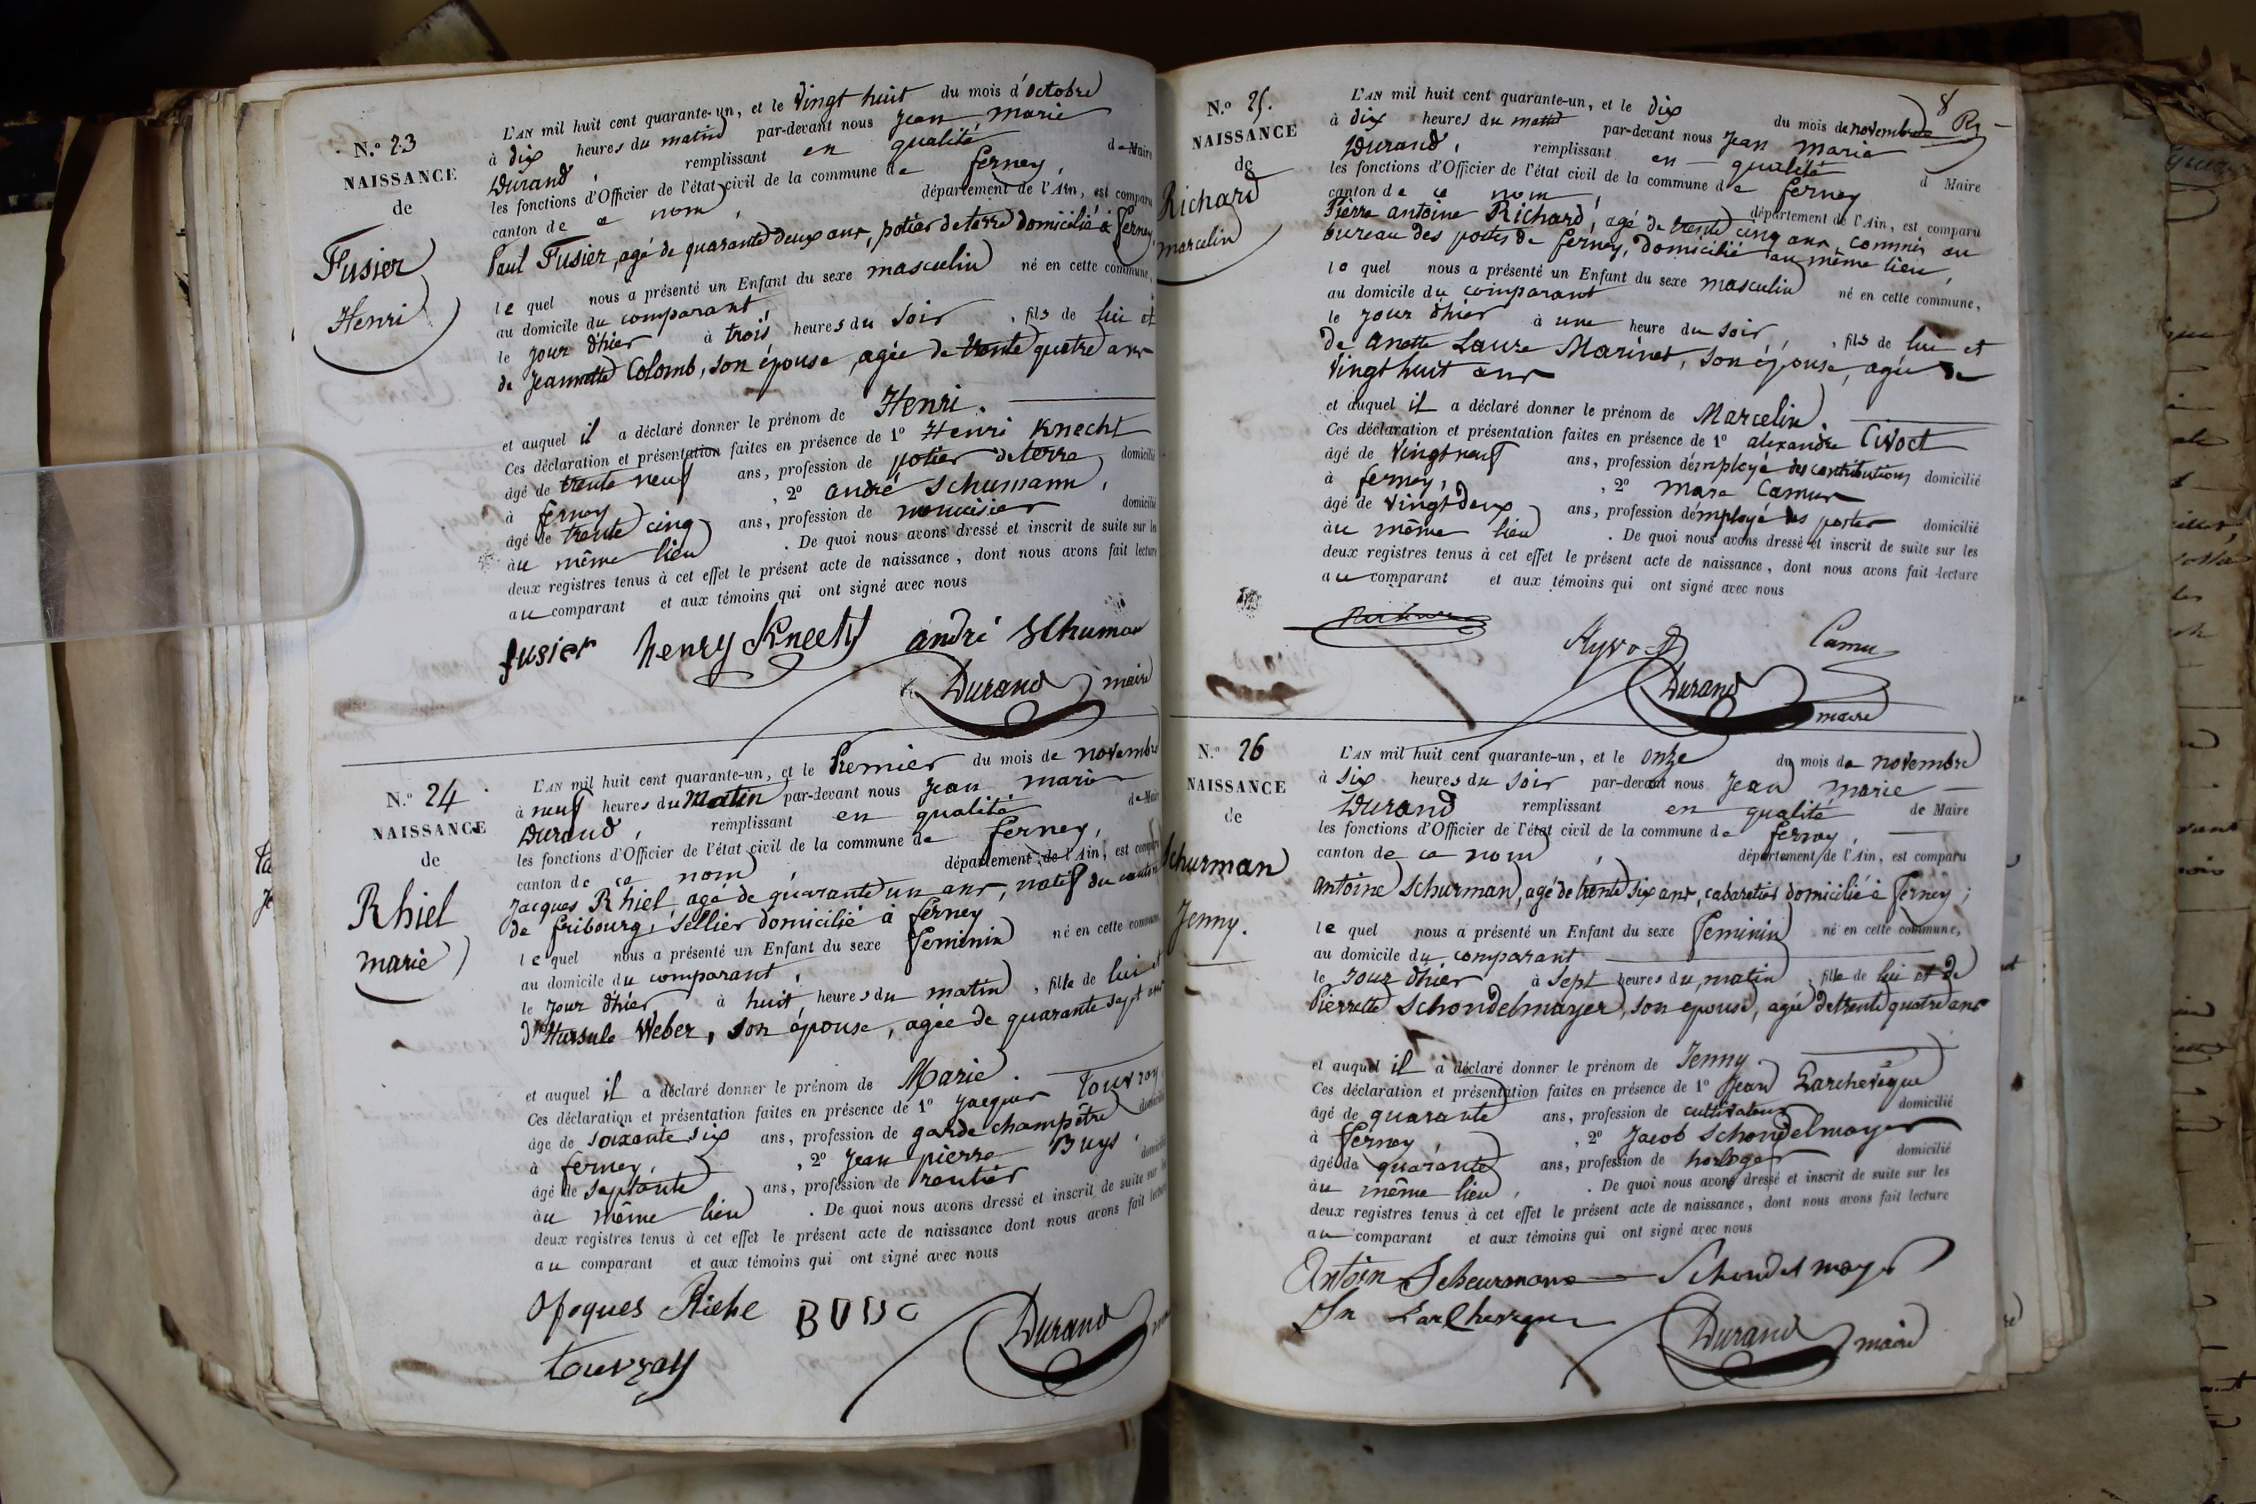 N.o 23
NAISSANCE
de
Fusier
Henri
L'AN mil huit cent quarante-un, et le vingt huit du mois d'octobre
à dix heures du matin par-devant nous Jean Marie
Durand, remplissant en qualité de Maire
les fonctions d'Officier de l'état civil de la commune de ferney,
canton de ce nom, département de l'Ain, est comparu
Paul Fusier, agé de quarante deux ans, potier de terre domicilié à ferney,
lequel nous a présenté un Enfant du sexe masculin né en cette commune,
au domicile du comparant,
le jour d'hier à trois heures du soir, fils de lui et
de Jeannette Colomb, son épouse, agée de trente quatre ans
et auquel il a déclaré donner le prénom de Henri.
Ces déclaration et présentation faites en présence de 1o Henri Knecht
âgé de trente neuf ans, profession de potier de terre domicilié
à ferney, 2o andré Schumann,
âgé de trente cinq ans, profession de menuisier domicilié
àu même lieu. De quoi nous avons dressé et inscrit de suite sur les
deux registres tenus à cet effet le présent acte de naissance, dont nous avons fait lecture
au comparant et aux témoins qui ont signé avec nous
fusier henry Knecht andré Schuman
Durand maire
N.o 24
NAISSANCE
de
Rhiel
marie
L'AN mil huit cent quarante-un, et le Premier du mois de novembre
à neuf heures du matin par-devant nous Jean marie
Durand, remplissant en qualité de Maire
les fonctions d'Officier de l'état civil de la commune de ferney,
canton de ce nom département de l'Ain, est comparu
Jacques Rhiel, agé de quarante un ans, natif du canton
de fribourg, sellier domicilié à ferney
lequel nous a présenté un Enfant du sexe feminin né en cette commune
au domicile du comparant,
le jour d'hier à huit heures du matin, fille de lui et
d'Hursule Weber, son épouse, agée de quarante sept ans
et auquel il a déclaré donner le prénom de Marie.
Ces déclaration et présentation faites en présence de 1o Jacques Touvroy
âge de soixante six ans, profession de garde champêtre domicilié
à ferney, 2o Jean pierre Buys,
âgé de septante ans, profession de rentier domicilié
àu même lieu. De quoi nous avons dressé et inscrit de suite sur les
deux registres tenus à cet effet le présent acte de naissance dont nous avons fait lecture
au comparant et aux témoins qui ont signé avec nous
Durand
8
N.o 25.
NAISSANCE
de
Richard
marcelin
L'AN mil huit cent quarante-un, et le dix du mois de novembre
à dix heures du matin par-devant nous Jean Marie
Durand, remplissant en qualité d Maire
les fonctions d'Officier de l'état civil de la commune de ferney
canton de ce nom, département de l'Ain, est comparu
Pierre antoine Richard, agé de trente cinq ans, commis au
bureau des postes de ferney, domicilié au même lieu,
lequel nous a présenté un Enfant du sexe masculin né en cette commune,
au domicile du comparant
le jour d'hier à une heure du soir, fils de lui et
de anette Laure Marinet, son épouse, agée de
vingt huit ans
et auquel il a déclaré donner le prénom de Marcelin.
Ces déclaration et présentation faites en présence de 1o alexandre Civoct
âgé de vingt neuf ans, profession d'employé des contributions domicilié
à ferney, 2o Marc Camus
âgé de vingt deux ans, profession d'employé des postes domicilié
àu même lieu. De quoi nous avons dressé et inscrit de suite sur les
deux registres tenus à cet effet le présent acte de naissance, dont nous avons fait lecture
au comparant et aux témoins qui ont signé avec nous
Camus
Durand
maire
N.o 26
NAISSANCE
de
Schurman
Jenny.
L'AN mil huit cent quarante-un, et le onze du mois de novembre
à six heures du soir par-devant nous Jean marie
Durand remplissant en qualité de Maire
les fonctions d'Officier de l'état civil de la commune de ferney,
canton de ce nom, département de l'Ain, est comparu
antoine Schurman, agé de trente six ans, cabaretier domicilié à ferney;
lequel nous a présenté un Enfant du sexe feminin né en cette commune,
au domicile du comparant
le jour d'hier à sept heures du matin, fille de lui et de
Pierrette Schondelmayer, son épouse, agée de trente quatre ans
et auquel il a déclaré donner le prénom de Jenny
Ces déclaration et présentation faites en présence de 1o Jean Larchevêque
âgé de quarante ans, profession de cultivateur domicilié
à ferney, 2o Jacob Schondelmayer
âgé de quarante ans, profession de horloger domicilié
àu même lieu,. De quoi nous avons dressé et inscrit de suite sur les
deux registres tenus à cet effet le présent acte de naissance, dont nous avons fait lecture
au comparant et aux témoins qui ont signé avec nous
Antoin Scheurmann Schondelmayer
Jn Larcheveque
Durand maire